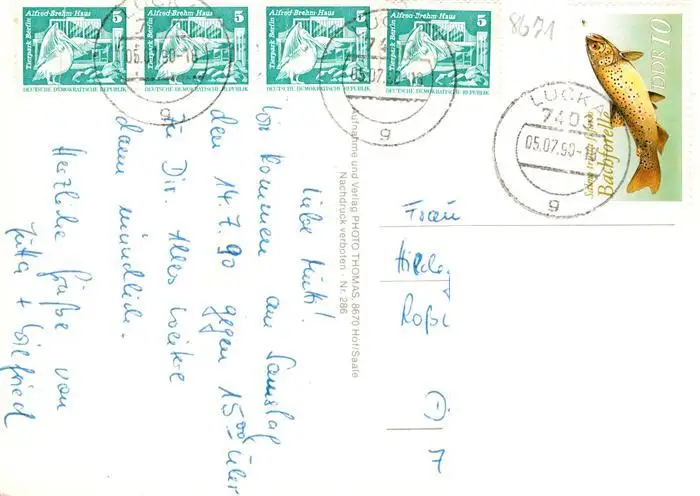 5 Alfred-Brehm-Haus
Tierpark Berlin
DEUTSCHE DEMOKRATISCHE REPUBLIK
5 Alfred-Brehm-Haus
Tierpark Berlin
DEUTSCHE DEMOKRATISCHE REPUBLIK
5 Alfred-Brehm-Haus
Tierpark Berlin
DEUTSCHE DEMOKRATISCHE REPUBLIK
5 Alfred-Brehm-Haus
Tierpark Berlin
DEUTSCHE DEMOKRATISCHE REPUBLIK
05.07.90-18
g
05.07.90-18
g
8671
DDR 10
Bachforelle
LUCKA
7403
05.07.90-1
g
Liebe
Wir kommen am Samstag
den 14.7.90 gegen 15 00 über
zu Dir. Alles weitere
dann mündlich.
Herzliche Grüße von
Jutta + Wilfried
Aufnahme und Verlag PHOTO THOMAS, 8670 Hof/Saale
Nachdruck verboten - Nr. 286
Frau
D.
7